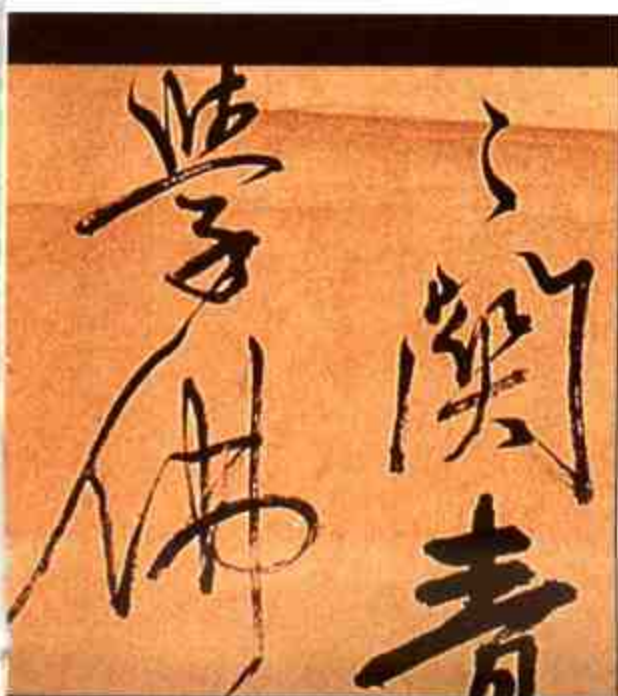 之關青
學佛